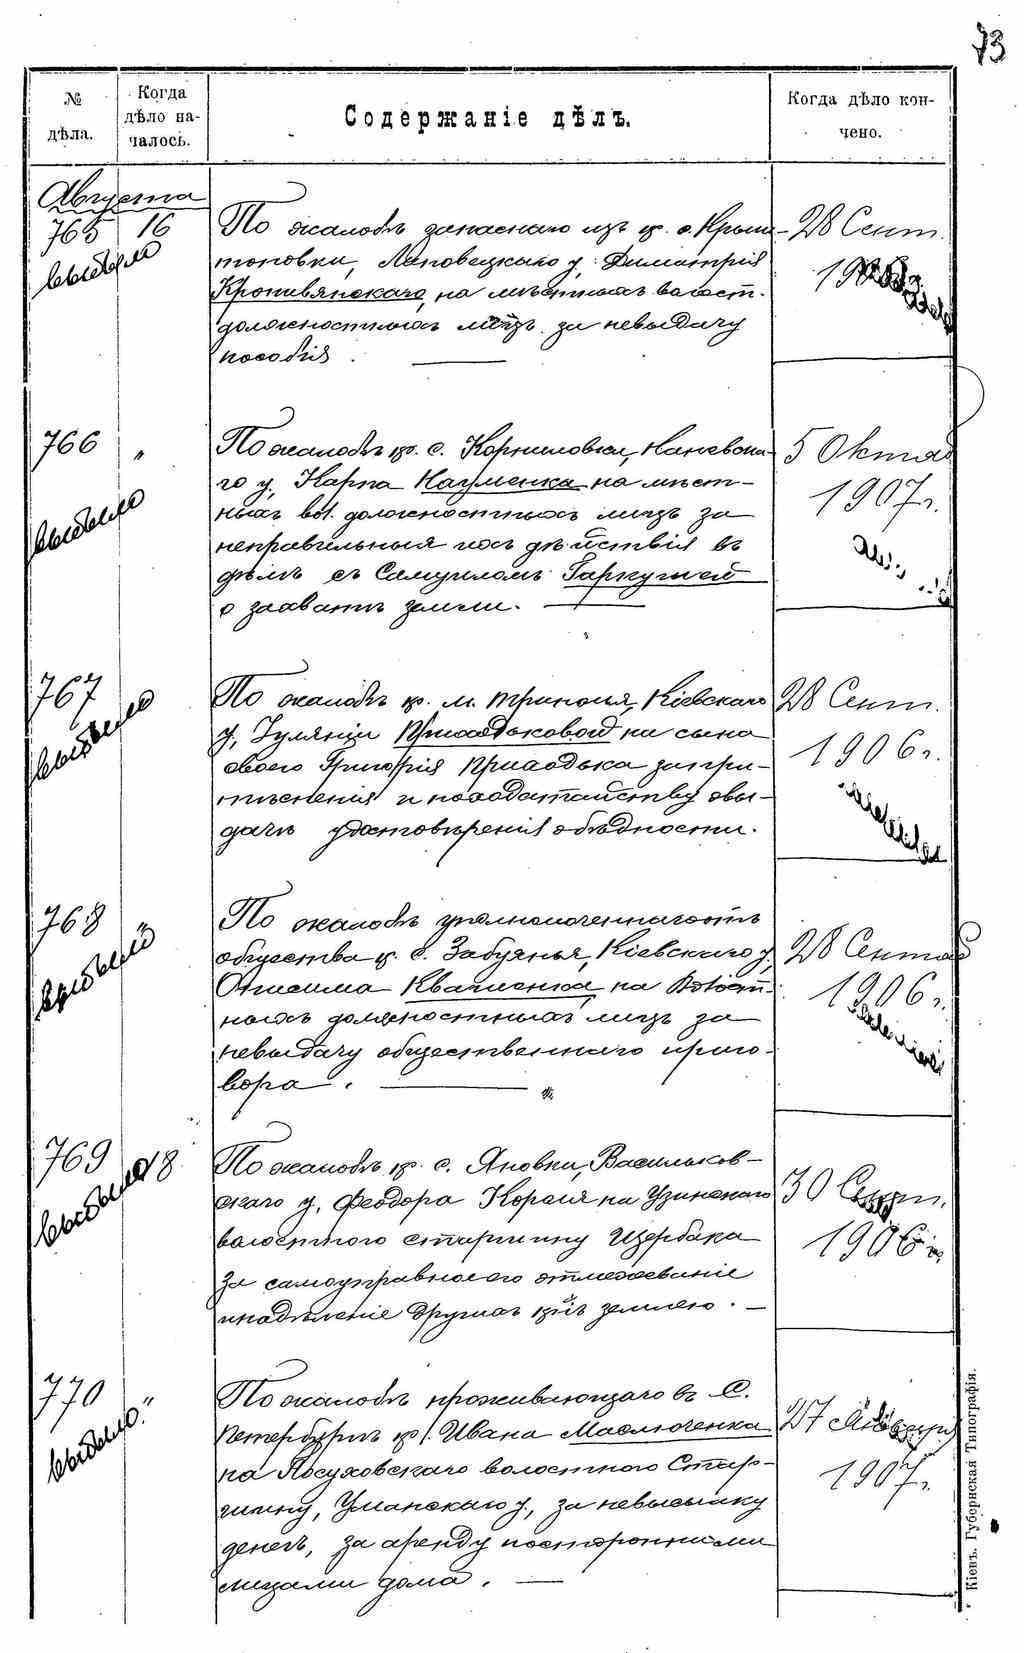 73
№ дѣла.
Когда дѣло на-
чалось.
Содержаніе дѣлъ.
Когда дѣло кон-
чено.
Августа
765
16
выбыло
По жалобѣ запаснаго изъ кр. с. Крыш-
топовки, Липовецкаго у. Димитрія
Кропивянскаго, на мѣстныхъ волост.
должностныхъ лицъ за невыдачу
пособія.
28 Сент.
766
"
выбыло
По жалобѣ кр. с. Корниловки, Каневска-
го у., Карпа Науменка на мѣст-
ныхъ вол. должностныхъ лицъ за
неправильныя ихъ дѣйствія въ
дѣлѣ съ Самуиломъ Гаркушей
о захватѣ земли.
5 Октяб
1907 г.
767
выбыло
По жалобѣ кр. м. Триполья, Кіевскаго
у., Іуляніи Приходьковой на сына
своего Григорія Приходька за при-
тѣсненія и ходатайству о вы-
дачѣ удостовѣренія о бѣдности.
28 Сент.
1906 г.
768
выбылый
По жалобѣ уполномоченнаго отъ
общества кр. с. Забуянья, Кіевскаго у.,
Онисима Квачненка, на Волост-
ныхъ должностныхъ лицъ за
невыдачу общественнаго приго-
вора.
28 Сентяб
1906 г.
769
18
выбыло
По жалобѣ кр. с. Яновки, Васильков-
скаго у., Феодора Короля на Узинскаго
волостного старшину Щербака
за самоуправное его отмежеваніе
и надѣленіе другихъ кр. землею.
30 Сент.
1906 г.
770
"
выбыло.
По жалобѣ проживающаго въ С.
Петербургѣ кр. Ивана Маслюченка
на Посуховскаго волостного Стар-
шину, Уманскаго у., за невысылку
денегъ, за аренду посторонними
лицами дома.
27 Января
1907 г.
Кіевъ. Губернская Типографія.